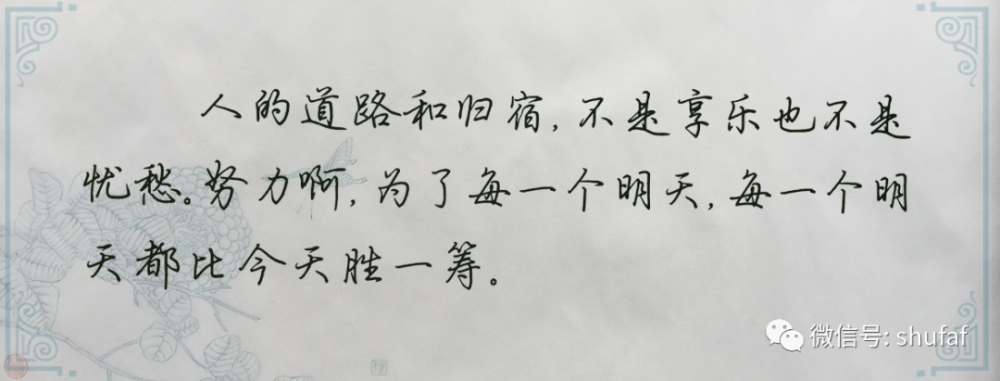 人的道路和归宿,不是享乐也不是
忧愁。努力啊,为了每一个明天,每一个明
天都比今天胜一筹。
微信号: shufaf